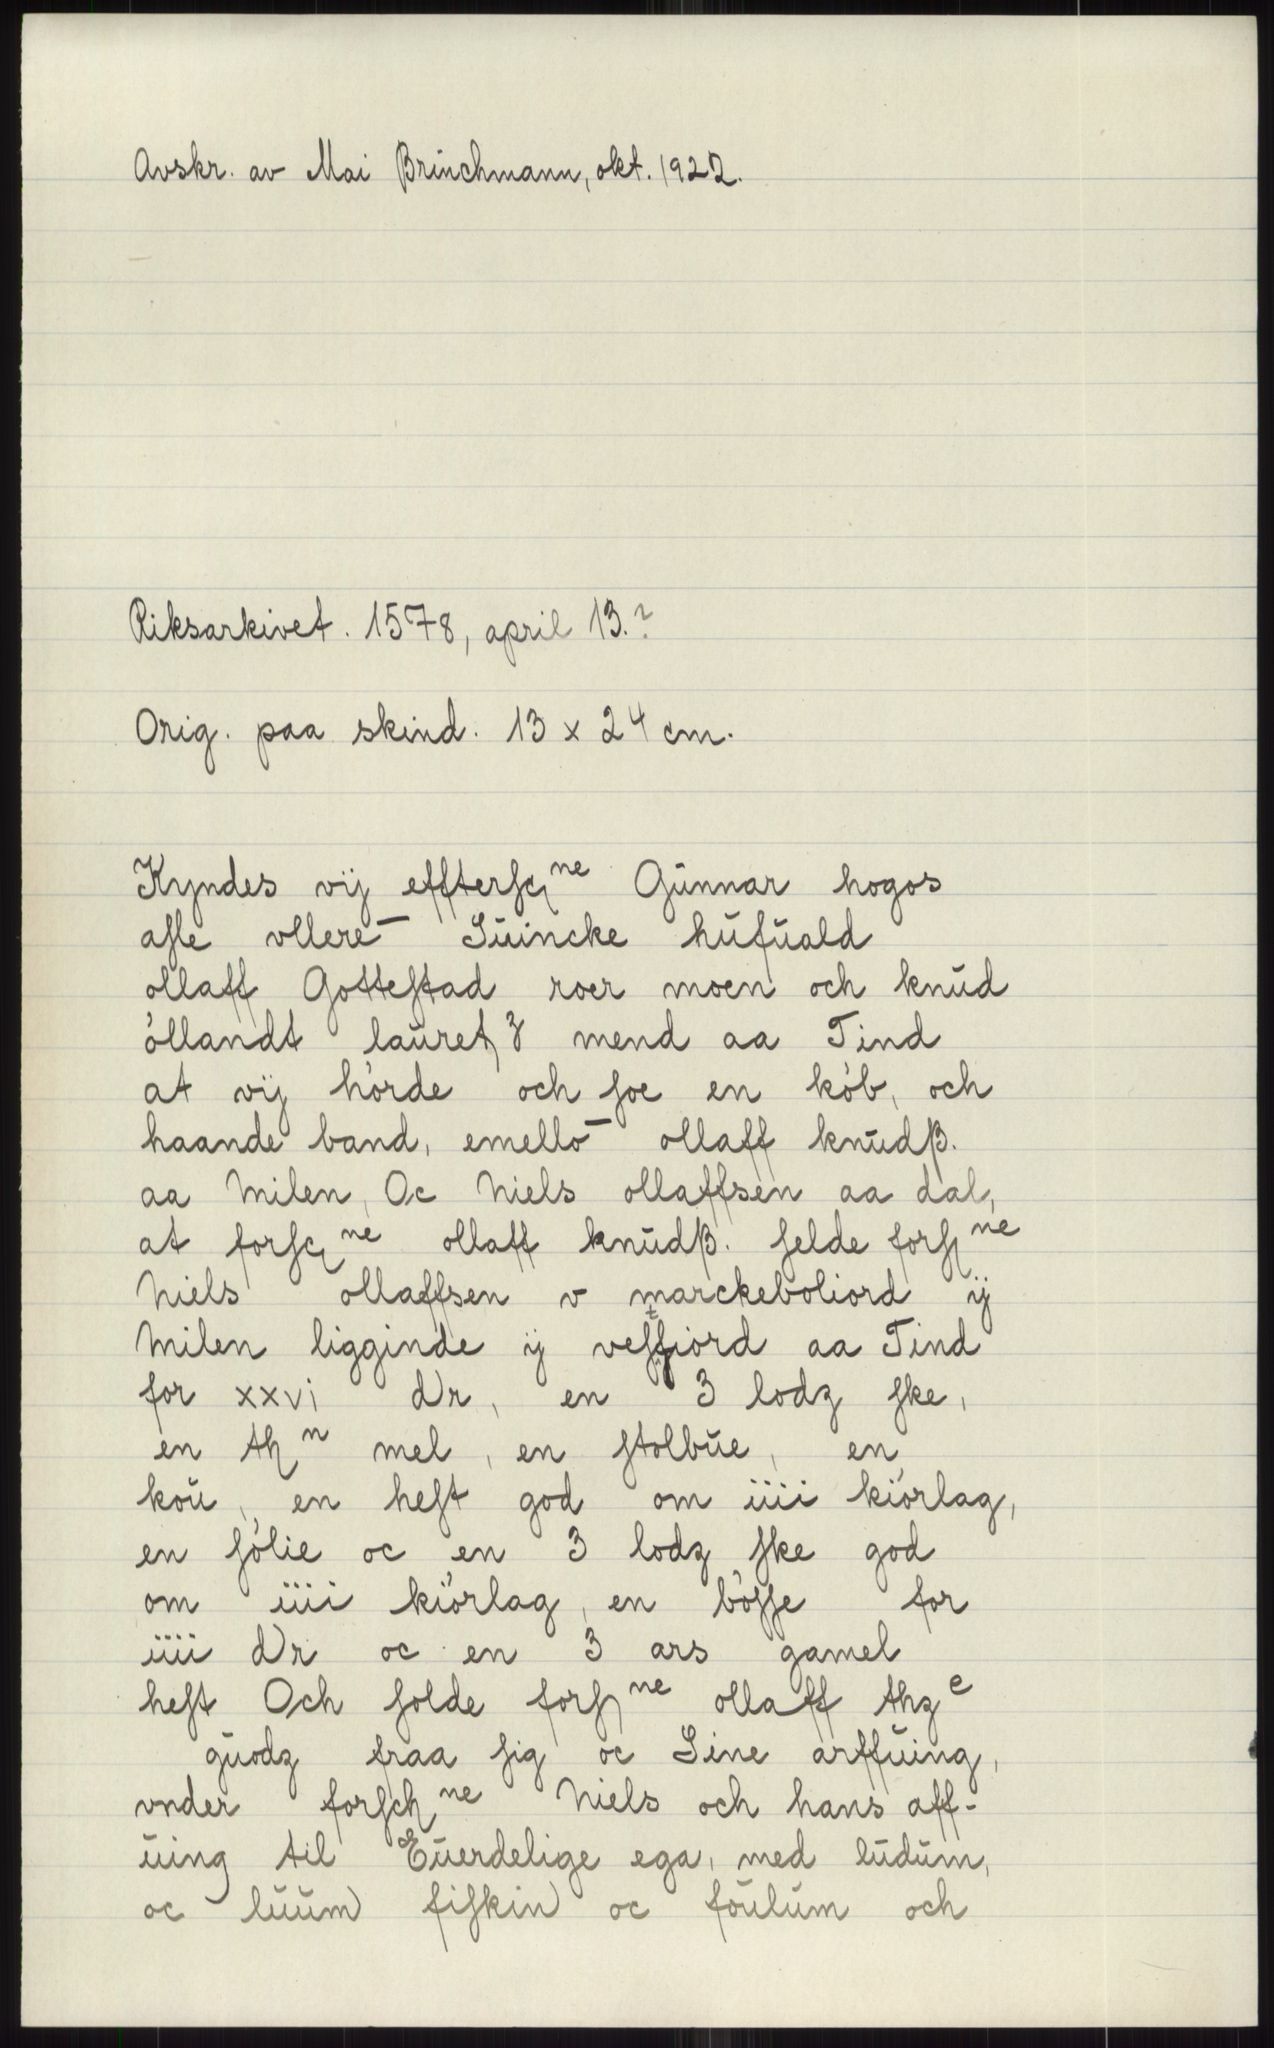 Avskr. av Mai Brinchmann, okt. 1922.
Riksarkivet. 1578, april 13.?
Orig. paa skind. 13 x 24 cm.
Kyndes vij efftersc ne Gŭnnar hogos
asle vllere¯ Sŭincke hŭfŭald
ollaff Gottestad roer moen och knŭd
óllandt laŭret 3 mend aa Tind
at vij hórde och soe en kób, och
haande band, emello¯ ollaff knŭdβ.
aa Milen, Oc Niels ollaffsen aa dal,
at forsc ne ollaff knŭdβ. selde fors ne
Niels ollaffsen v marckeboliord ij
Milen ligginde ij vestfiord aa Tind
for xxvi dr, en 3 lodz ske,
en th n mel, en stolbŭe, en
koŭ, en hest god om iiii kiórlag,
en sólie oc en 3 lodz ske god
om iiii kiórlag, en bósse for
iiii dr oc en 3 ars gamel
hest Och solde fors ne ollaff thz e
gŭodz fraa sig oc Sine arffŭing,
vnder forsch ne Niels och hans aff-
ŭing til Eŭerdelige ega, med lŭdŭm,
oc lŭŭm fiskin oc foŭlŭm och